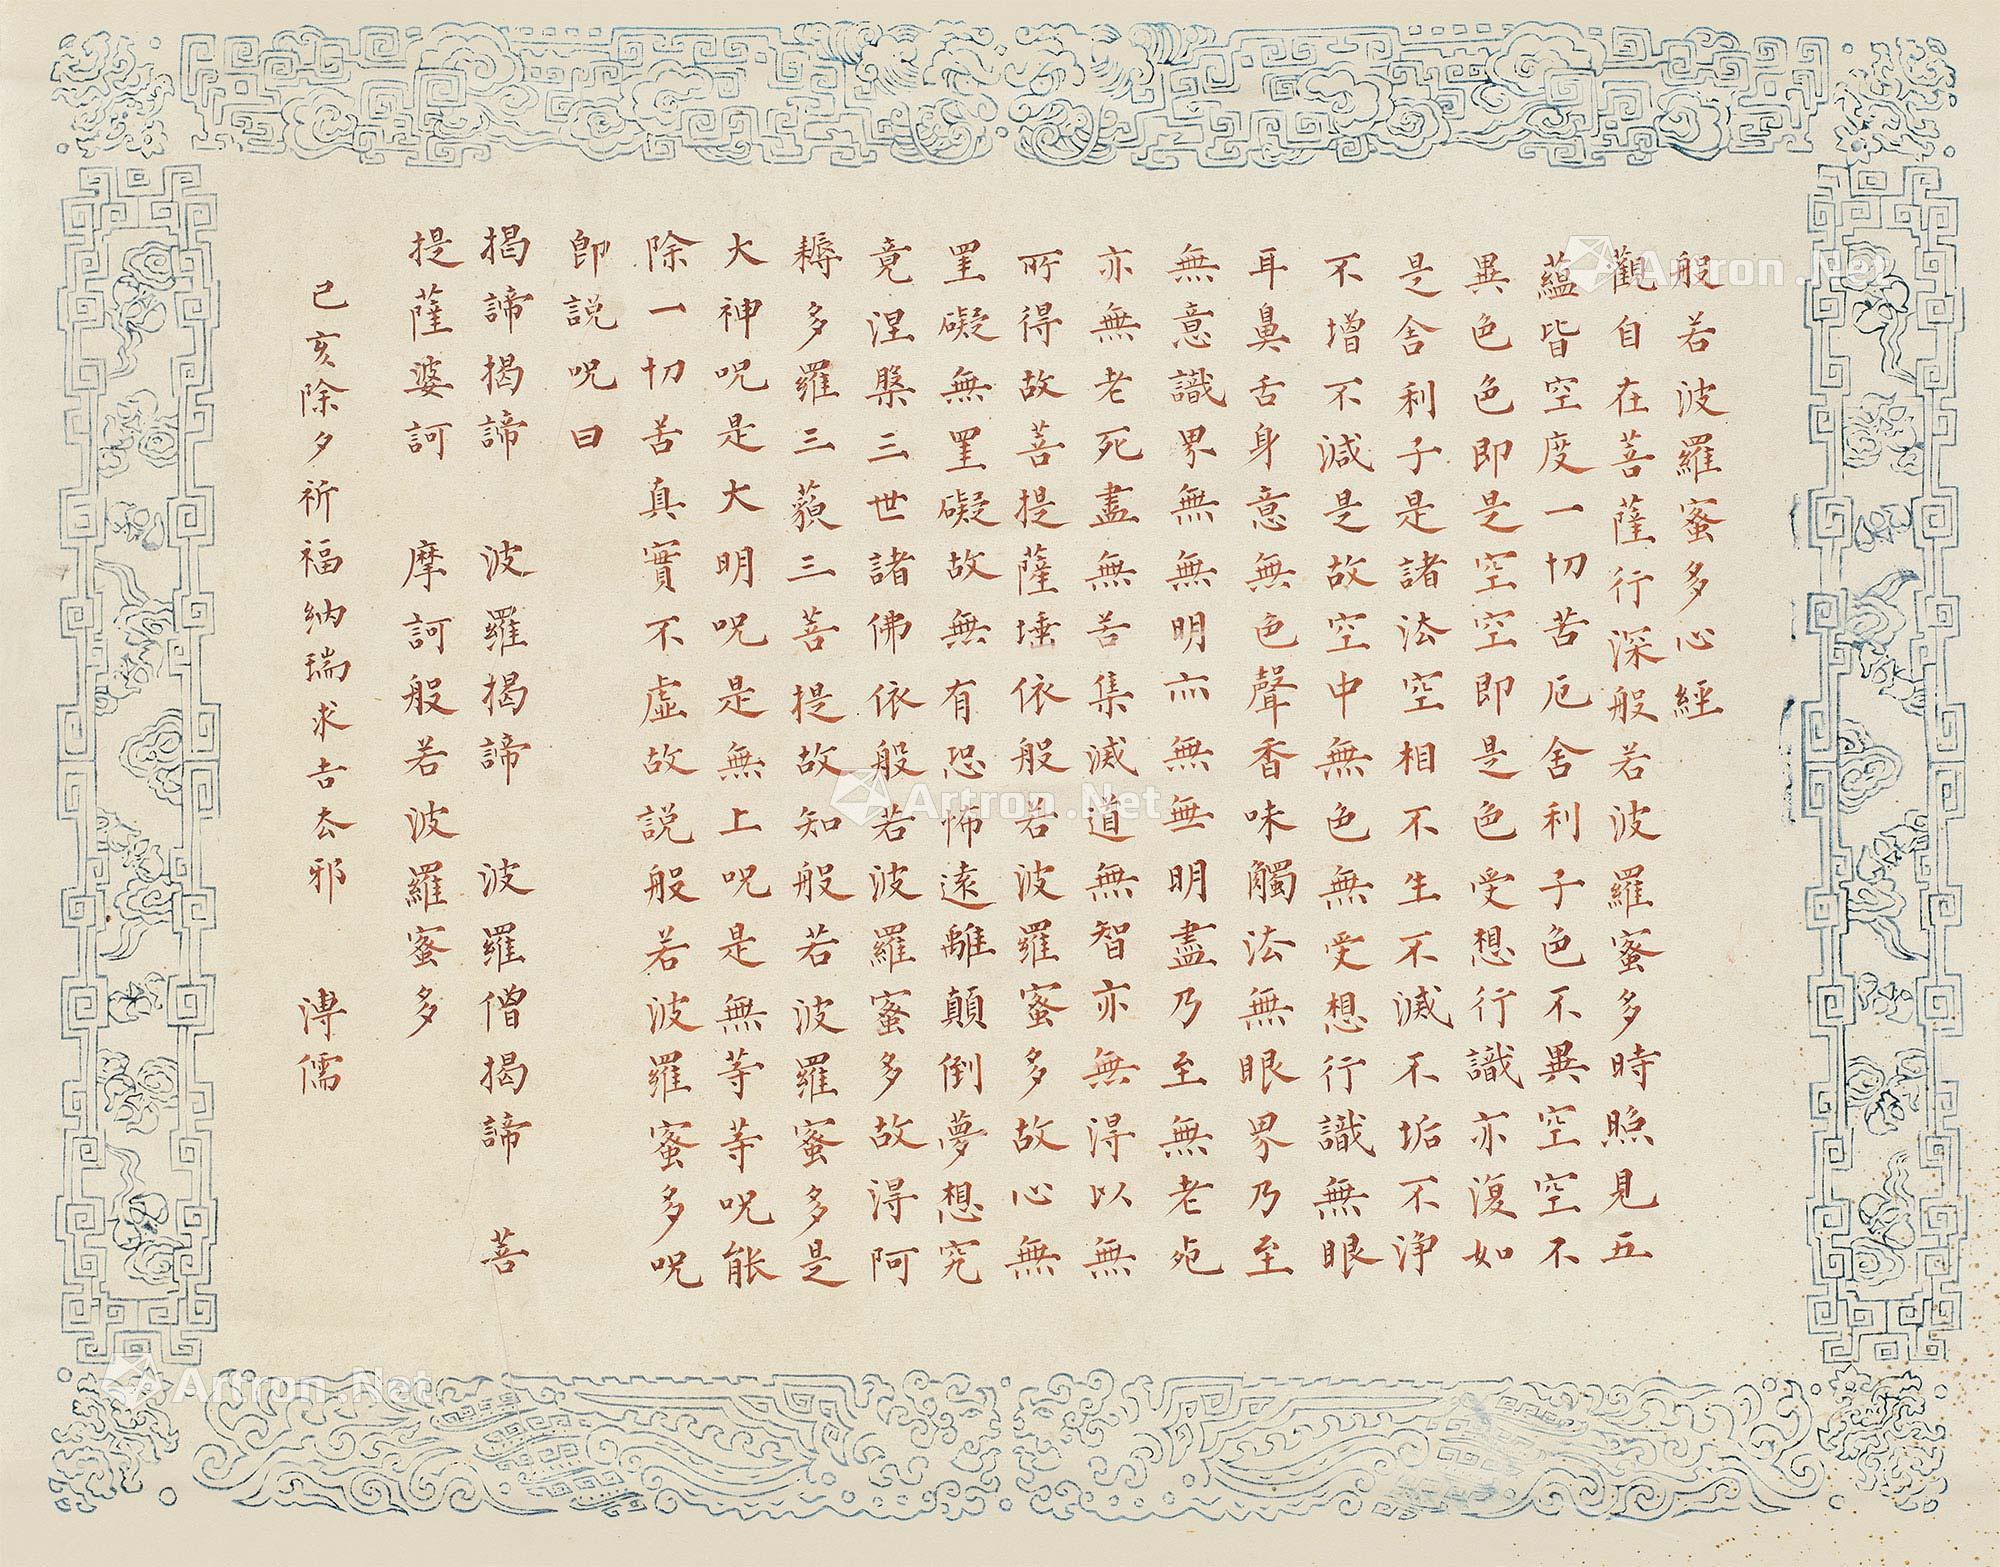 般若波羅蜜多心經
觀自在菩薩行深般若波羅蜜多時照見五
蘊皆空度一切苦厄舍利子色不異空空不
異色色即是空空即是色受想行識亦復如
是舍利子是諸法空相不生不滅不垢不淨
不增不減是故空中無色無受想行識無眼
耳鼻舌身意無色聲香味觸法無眼界乃至
無意識界無無明亦無無明盡乃至無老死
亦無老死盡無苦集滅道無智亦無得以無
所得故菩提薩埵依般若波羅蜜多故心無
罣礙無罣礙故無有恐怖遠離顛倒夢想究
竟涅槃三世諸佛依般若波羅蜜多故得阿
耨多羅三藐三菩提故知般若波羅蜜多是
大神呪是大明呪是無上呪是無等等呪能
除一切苦真實不虛故說般若波羅蜜多呪
即說呪曰
揭諦揭諦 波羅揭諦 波羅僧揭諦 菩
提薩婆訶 摩訶般若波羅蜜多
己亥除夕祈福納瑞求吉去邪 溥儒
Artron.Net
Artron.Net
Artron.Net